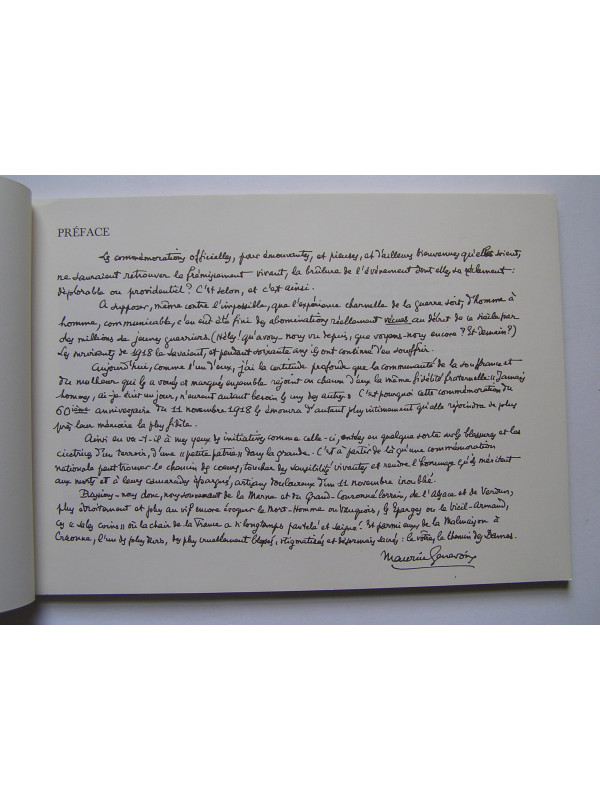 PRÉFACE
Les commémorations officielles, pour émouvantes, et pieuses, et d'ailleurs bienvenues qu'elles soient,
ne sauraient retrouver le frémissement vivant, la brûlure de l'événement dont elles se réclament :
déplorable ou providentiel ? C'est selon, et c'est ainsi.
A supposer, même contre l'impossible, que l'expérience charnelle de la guerre soit, d'homme à
homme, communicable, c'en eût été fini des abominations réellement vécues au début de ce siècle par
des millions de jeunes guerriers. (Hélas ! qu'avons-nous vu depuis, que voyons-nous encore ? Et demain ?)
Les survivants de 1918 le savaient, et pendant soixante ans ils ont continué d'en souffrir.
Aujourd'hui, comme l'un d'eux, j'ai la certitude profonde que la communauté de la souffrance et
du malheur qui les a voués et marqués ensemble rejoint en chacun d'eux la même fidélité fraternelle : « Jamais
hommes, ai-je écrit un jour, n'eurent autant besoin les uns des autres ». C'est pourquoi cette commémoration du
60ième anniversaire du 11 novembre 1918 les émouvra d'autant plus intimement qu'elle rejoindra de plus
près leur mémoire la plus fidèle.
Ainsi en va-t-il à mes yeux des initiatives comme celle-ci, entées en quelque sorte sur les blessures et les
cicatrices d'un terroir, d'une « petite patrie » dans la grande. C'est à partir de là qu'une commémoration
nationale peut trouver le chemin des coeurs, toucher des sensibilités vivantes et rendre l'hommage qu'ils méritent
aux morts et à leurs camarades épargnés, artisans douloureux d'un 11 novembre inoublié.
nous donc, nous souvenant de la Marne et du Grand-Couronné lorrain, de l'Alsace et de Verdun,
plus étroitement et plus au vif encore évoquer le Mort-Homme ou Vauquois, les Eparges ou le Vieil-Armand,
ces « sales coins » où la chair de la France a si longtemps pantelé et saigné ! Et parmi eux, de la Malmaison à
Craonne, l'un des plus durs, des plus cruellement blessés, stigmatisés et désormais sacrés : le vôtre, le Chemin des Dames.
Maurice Genevoix